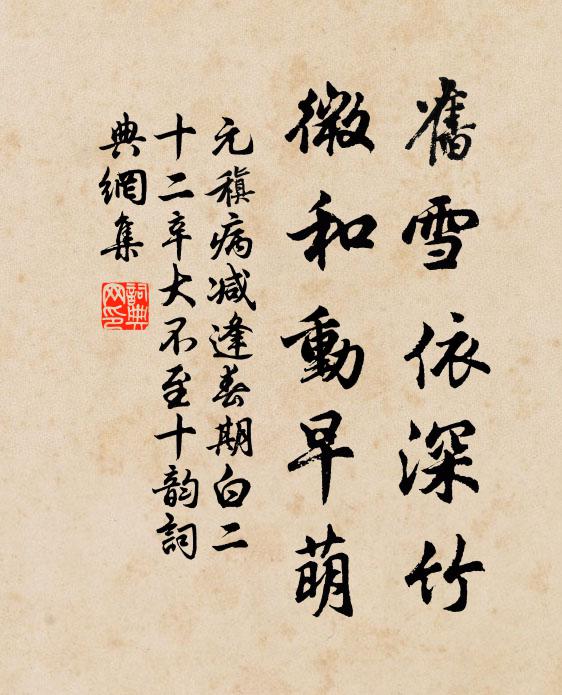 舊雪依深竹
微和動早萌
元稹病減逢春期白二
十二辛大不至十韵詞
典網集
詞典網印